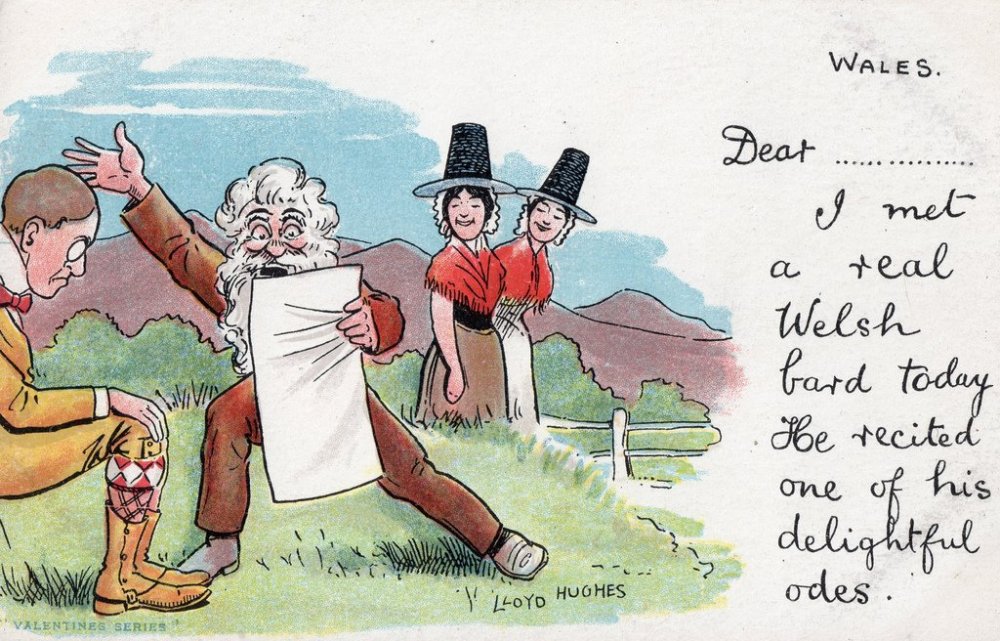 WALES.
Dear ................
I met
a real
Welsh
bard today
He recited
one of his
delightful
odes.
LLOYD HUGHES
"VALENTINES SERIES"